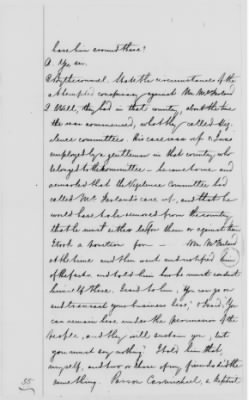 have him around there?
A. Yes, sir.
By the counsel. State the circumstances of the
attempted conspiracy against Mr. McFarland
. Well, they had in that county, about the time
the war commenced, what they called Vig-
ilence committees. His case was up. I was
employed by a gentleman in that county, who
belonged to the committee — he came home and
remarked that the Vigilence Committee had
called McFarland's case up, and that he
would have to be removed from the country
that he must either be for them or against them
I took a position for — Mr. McFarland
at the time and then went and notified him
of the facts, and told him how he must conduct
himself there. I said to him, You can go on
and transact your business here; I said, You
can remain here under the permission of the
people, and they will sustain you, but
you must say nothing. I told him that,
myself, and two or three of my friends did the
same thing. Parson Carmichael, a Baptist
55